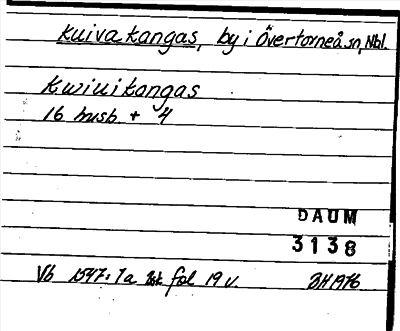 Kuivakangas, by i Övertorneå sn, Nbl.
Kwiuikangas
16 husb + 4
DAUM
3138
Vb 1547:7a fol 19 v. BH1976